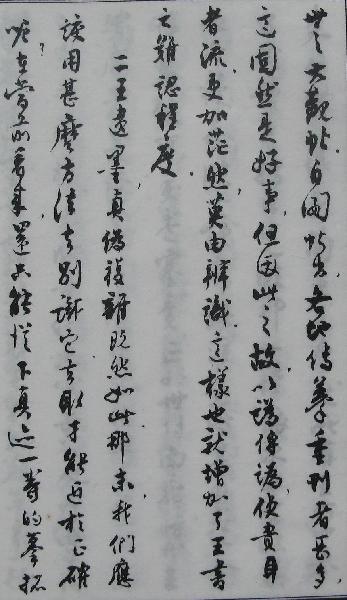 世之大觀帖自閣帖出各地傳摹重刊者甚多
這固然是好事但因此之故以譌傳譌使責耳
者流更加茫然莫由辨識這樣也就增加了王書
之難認程度
二王遺墨真偽複雜既然如此那末我們應
該用甚麼方法去別識它去取才能近於正確
呢在當前看來還只能從下真迹一等的摹搨